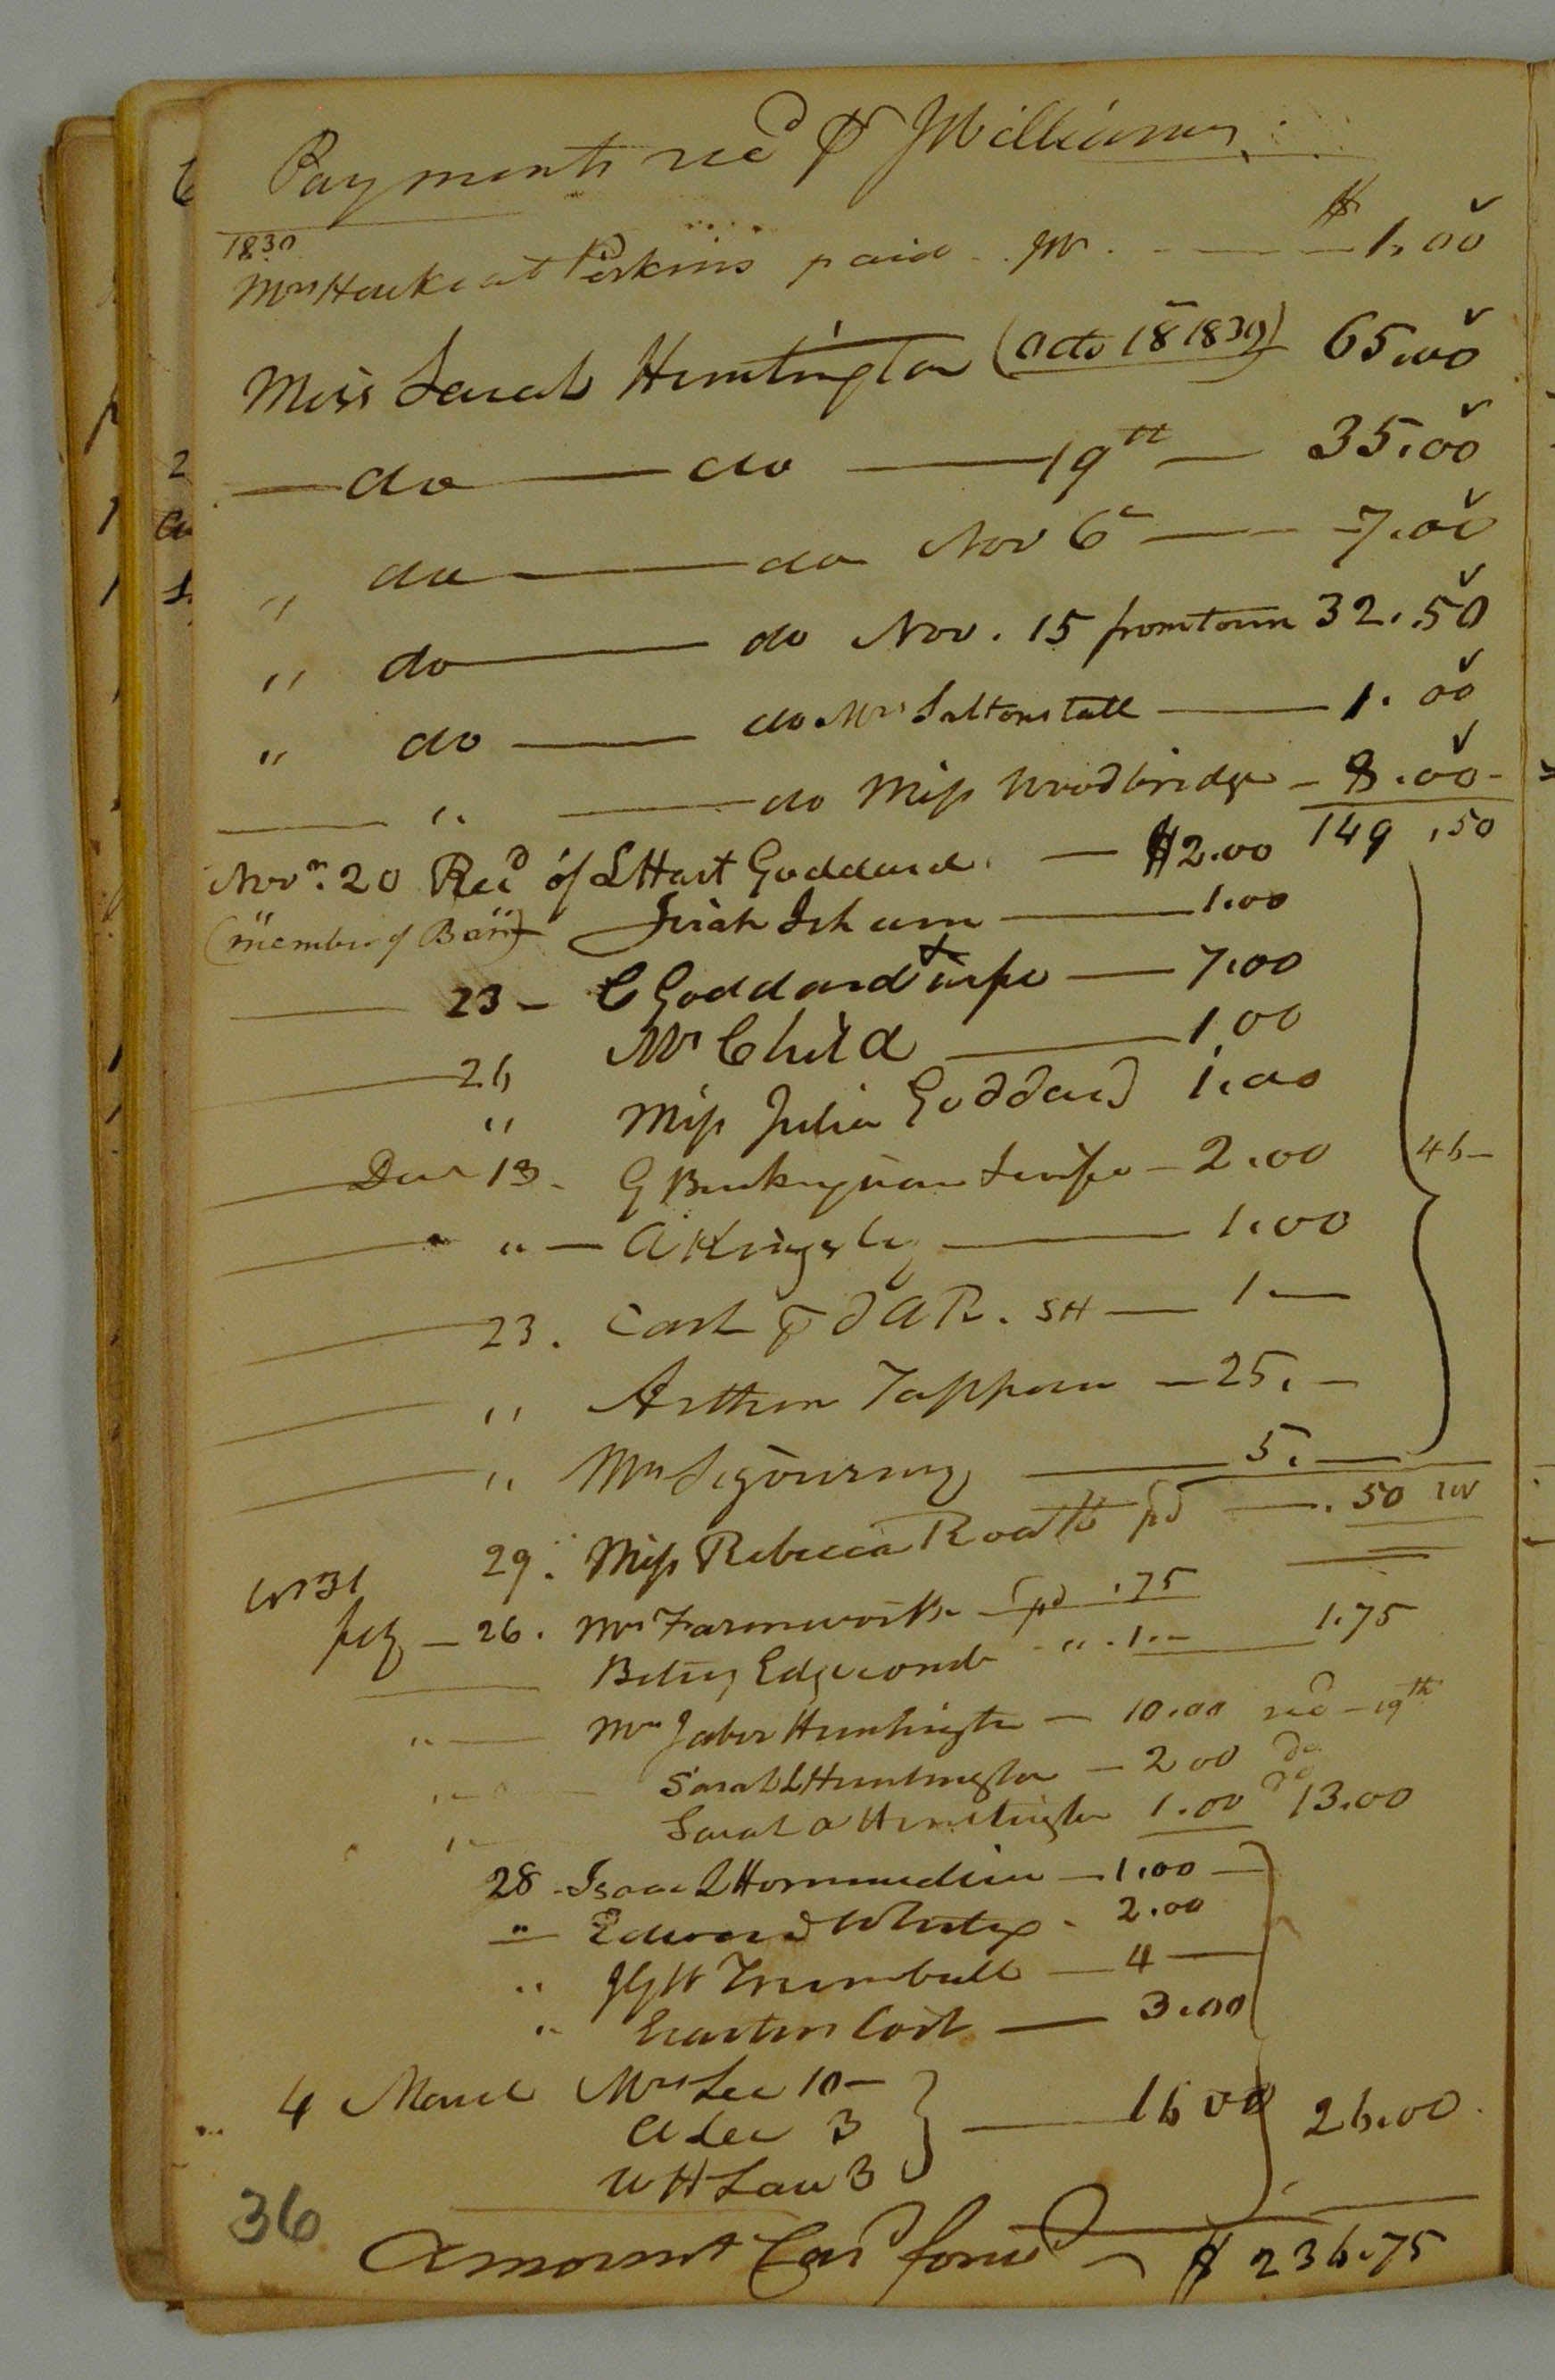 Payments recd pr J Williams
$
1830
Mrs Hauke at Perkins paid JW 1.00
Miss Sarah Huntington (Octo 18 1830) 65.00
do do 19th 35.00
" do do Nov 6 7.00
" do do Nov. 15 from town 32.50
" do do Mrs Saltonstall 1.00
" do Miss Woodbridge 8.00
149.50
Novr. 20 Recd of L Hart Goddard $2.00
(member of Bar) Jirah Isham 1.00
23 C Goddard & wife 7.00
26 Mr Child 1.00
" Miss Julia Goddard 1.00
Decr 13. G Buckingham & wife 2.00
" A Kingsley 1.00
23. Cash pr D A R. SH 1
46
" Arthur Tappan 25.
" Mrs Sigourney 5.
29. Miss Rebecca Roath pd .50
1831
26. Mrs Farnsworth pd .75
Betsey Edgecomb " 1. 1.75
" Mrs Jabez Huntington 10.00 recd 19th
" Sarah L Huntington 2.00 do
" Sarah A Huntington 1.00 do 13.00
28 Isaac 1.00
" Edward Whiting 2.00
" Trumbull 4
" Erastus Coit 3.00
4 March Mrs Lee 10
A Lee 3 16 00 26.00
W H Law 3
36
Amount Card forwd $ 236.75